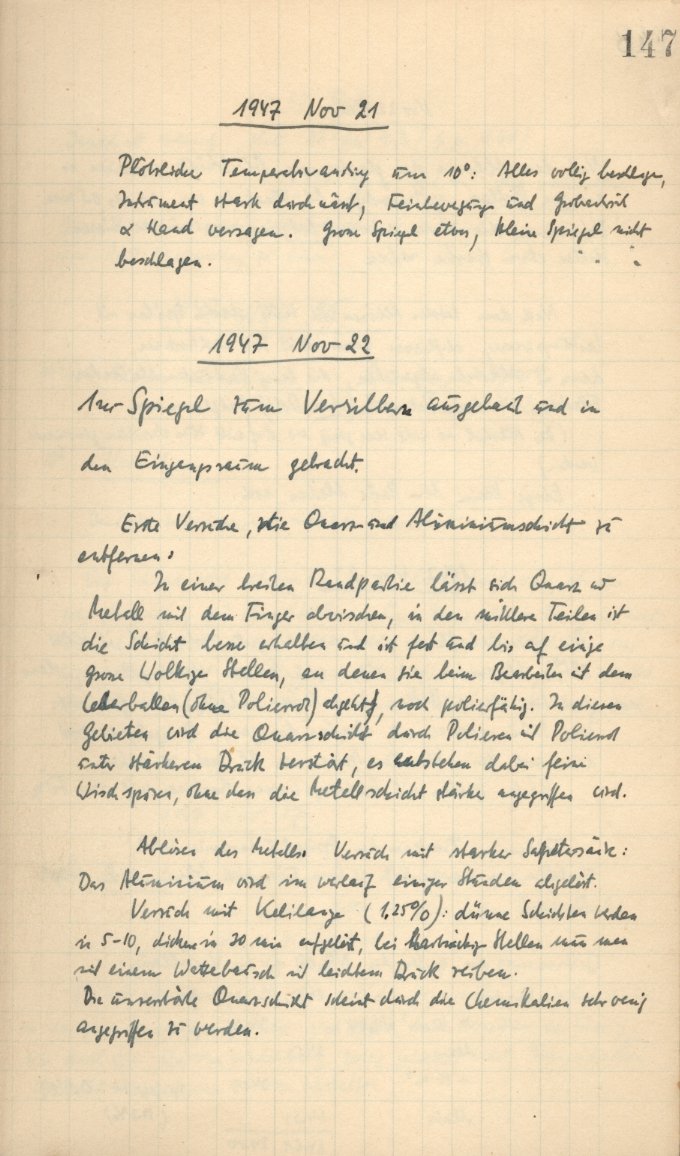 147
1947 Nov 21
Plötzliche Temperaturändrg um 10°: Alles völlig beschlagen,
Instrument stark durchnässt, Feinbewegung und Grobantrieb
α Hand versagen. Grosse Spiegel etwas, kleine Spiegel nicht
beschlagen.
1947 Nov 22
1m-Spiegel zum Versilbern ausgebaut und in
den Eingangsraum gebracht.
Erste Versuche, die Quarz- und Aluminiumschicht zu
entfernen:
In einer breiten Randpartie lässt sich Quarz u
Metall mit dem Finger abwischen, in den mittleren Teilen ist
die Schicht besser erhalten und ist fest und bis auf einige
grosse wolkige Stellen, an denen sie beim Bearbeiten mit dem
Lederballen (ohne Polierrot) abgeht, noch polierfähig. In diesen
Gebieten wird die Quarzschicht durch Polieren mit Polierrot
unter stärkerem Druck zerstört, es entstehen dabei feine
Wischspuren, ohne dass die Metallschicht stärker angegriffen wird.
Ablösen des Metalls. Versuch mit starker Salpetersäure:
Das Aluminium wird im Verlauf einiger Stunden abgelöst.
Versuch mit Kalilauge (1,25%): dünne Schichten werden
in 5-10, dicke in 20 min aufgelöst, bei hartnäckigen Stellen muss man
mit einem Wattebausch mit leichtem Druck reiben.
Die unzerstörte Quarzschicht scheint durch die Chemikalien sehr wenig
angegriffen zu werden.